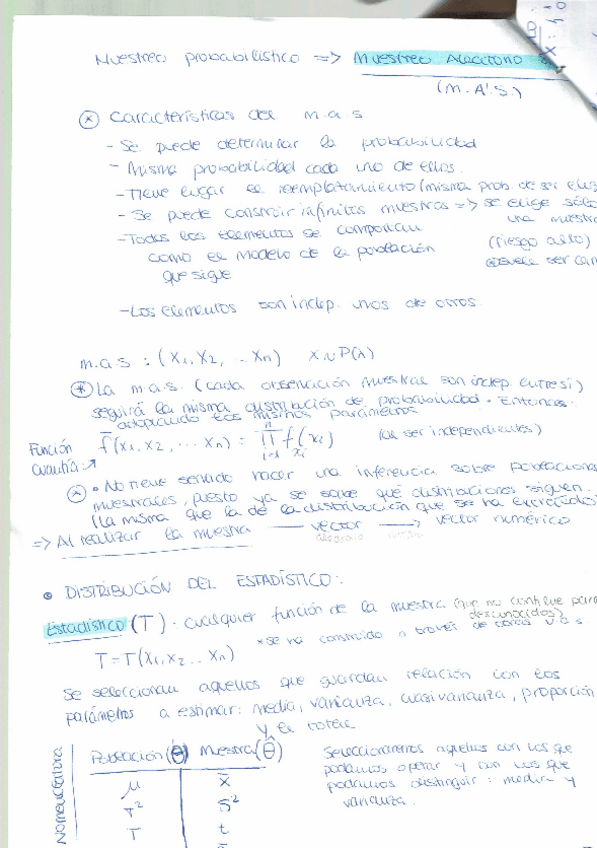 Muestreo probabilístico => Muestreo Aleatorio
(M.A.S.)
* Características del m.a.s.
- Se puede determinar la probabilidad
- Misma probabilidad cada uno de ellos.
- Tiene lugar el reemplazamiento (misma prob. de ser
- Se puede construir infinitas muestras => se elige sólo
una muestra
- Todos los elementos se comportan (riesgo alto)
como el modelo de la población
que sigue
- Los elementos son indep. unos de otros.
m.a.s : (X1, X2, .. Xn) X ∿ P(λ)
* La m.a.s. (cada observación muestral son indep. entre sí)
seguirá la misma distribución de probabilidad. Entonces.
adoptando los mismos parámetros
Función f(x1, x2, ... xn) = ∏ f(xi) (al ser independientes)
cuantía: i=1 xi
* • No tiene sentido hacer una inferencia sobre poblaciones
muestrales, puesto ya se sabe qué distribuciones siguen.
(La misma que la de la distribución que se ha extraído)
=> Al realizar la muestra — vector → vector numérico
• DISTRIBUCIÓN DEL ESTADÍSTICO:
Estadístico (T). cualquier función de la muestra (que no contiene
desconocidos)
*se ha construido a través de
T = T(X1, X2 .. Xn)
Se seleccionan aquellos que guardan relación con los
parámetros a estimar: media, varianza, cuasivarianza, proporción
y el total
Nomenclatura
Población (θ) Muestra (θ̂) Seleccionaremos aquellos con los que
podamos operar y con los que
μ x̄ podamos distinguir: media y
σ² S² varianza.
T t